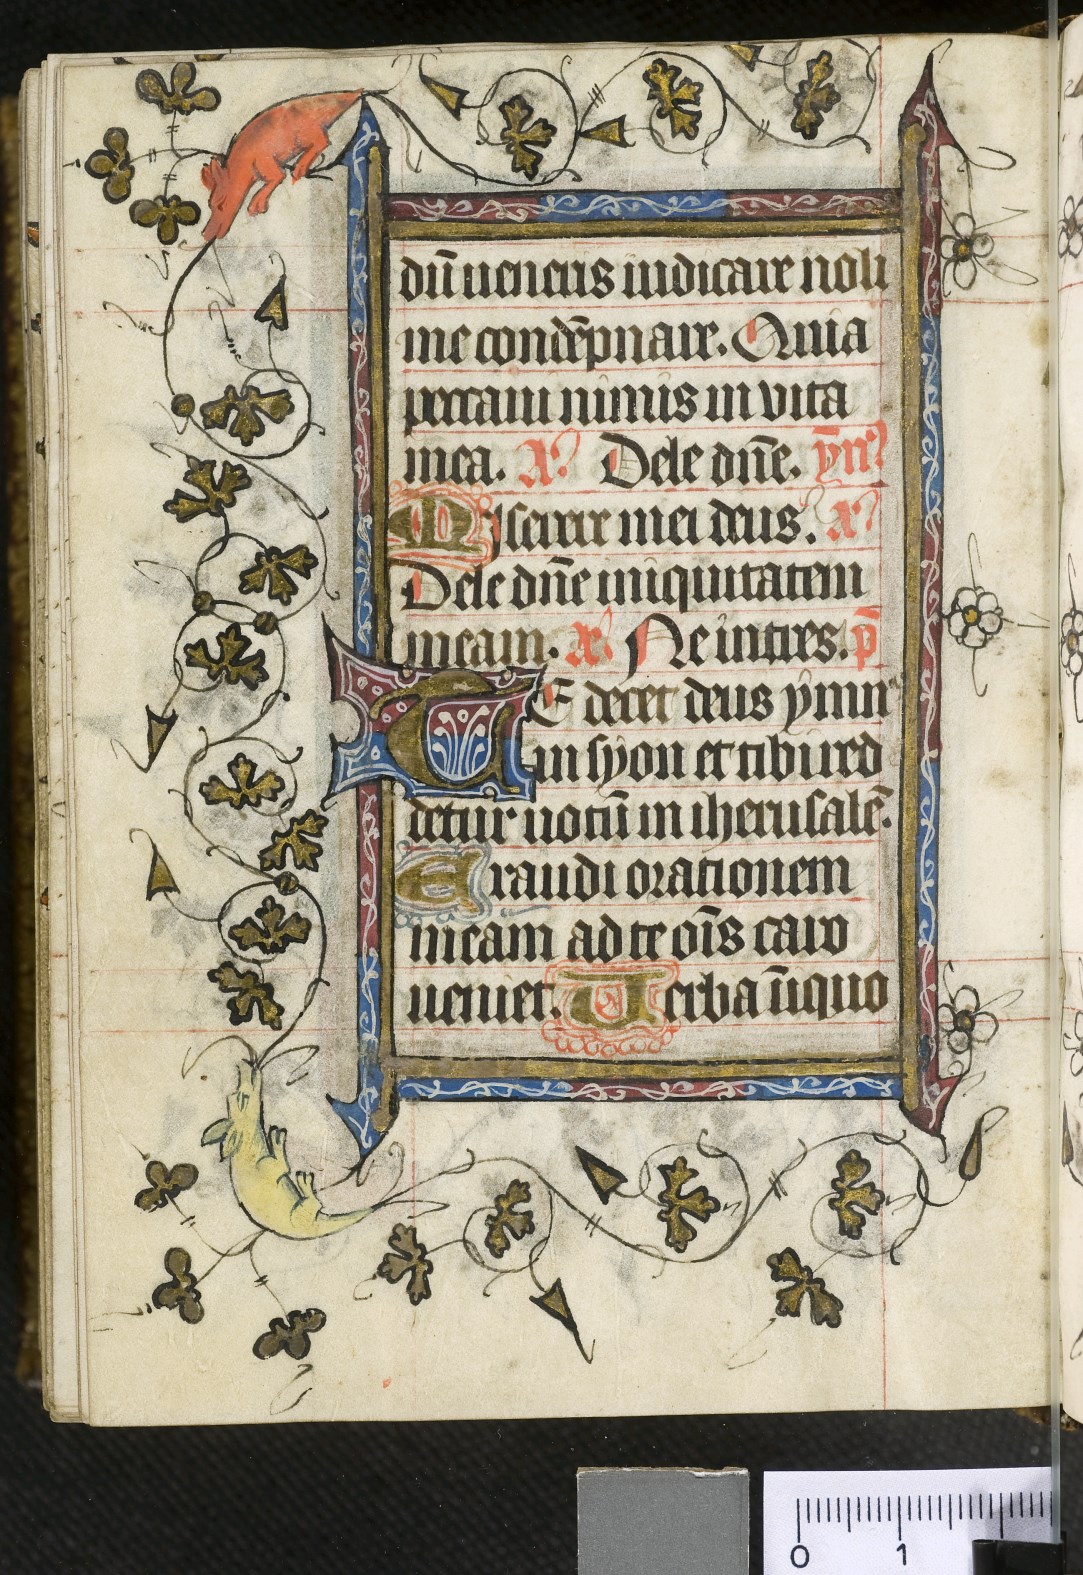 dū ueneris iudicare noli
me condēpnare. Quia
peccaui nimis in vita
mea. A? Dele dn̄e. p̄s
Miserere mei deus. a?
Dele dn̄e iniquitatem
meam. a? Ne intres. p̄
TE decet deus ymn⁹
in syon et tibi red
detur uotū in iherusalē.
Exaudi orationem
meam ad te om̄s caro
ueniet. Uerba iniquo
0 1